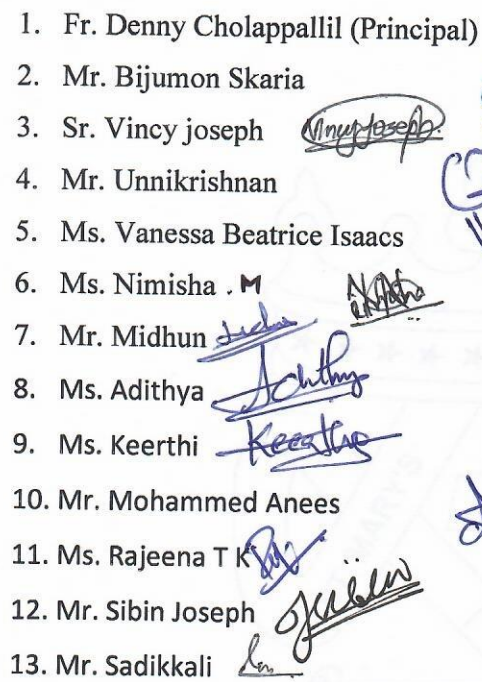 1. Fr. Denny Cholappallil (Principal)
2. Mr. Bijumon Skaria
3. Sr. Vincy joseph Vincy Joseph
4. Mr. Unnikrishnan
5. Ms. Vanessa Beatrice Isaacs
6. Ms. Nimisha . M
7. Mr. Midhun
8. Ms. Adithya Adithya
9. Ms. Keerthi Keerthi
10. Mr. Mohammed Anees
11. Ms. Rajeena T K
12. Mr. Sibin Joseph
13. Mr. Sadikkali